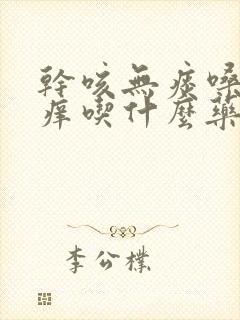 幹咳無痰嗓
癢喫什麼藥
李公樸